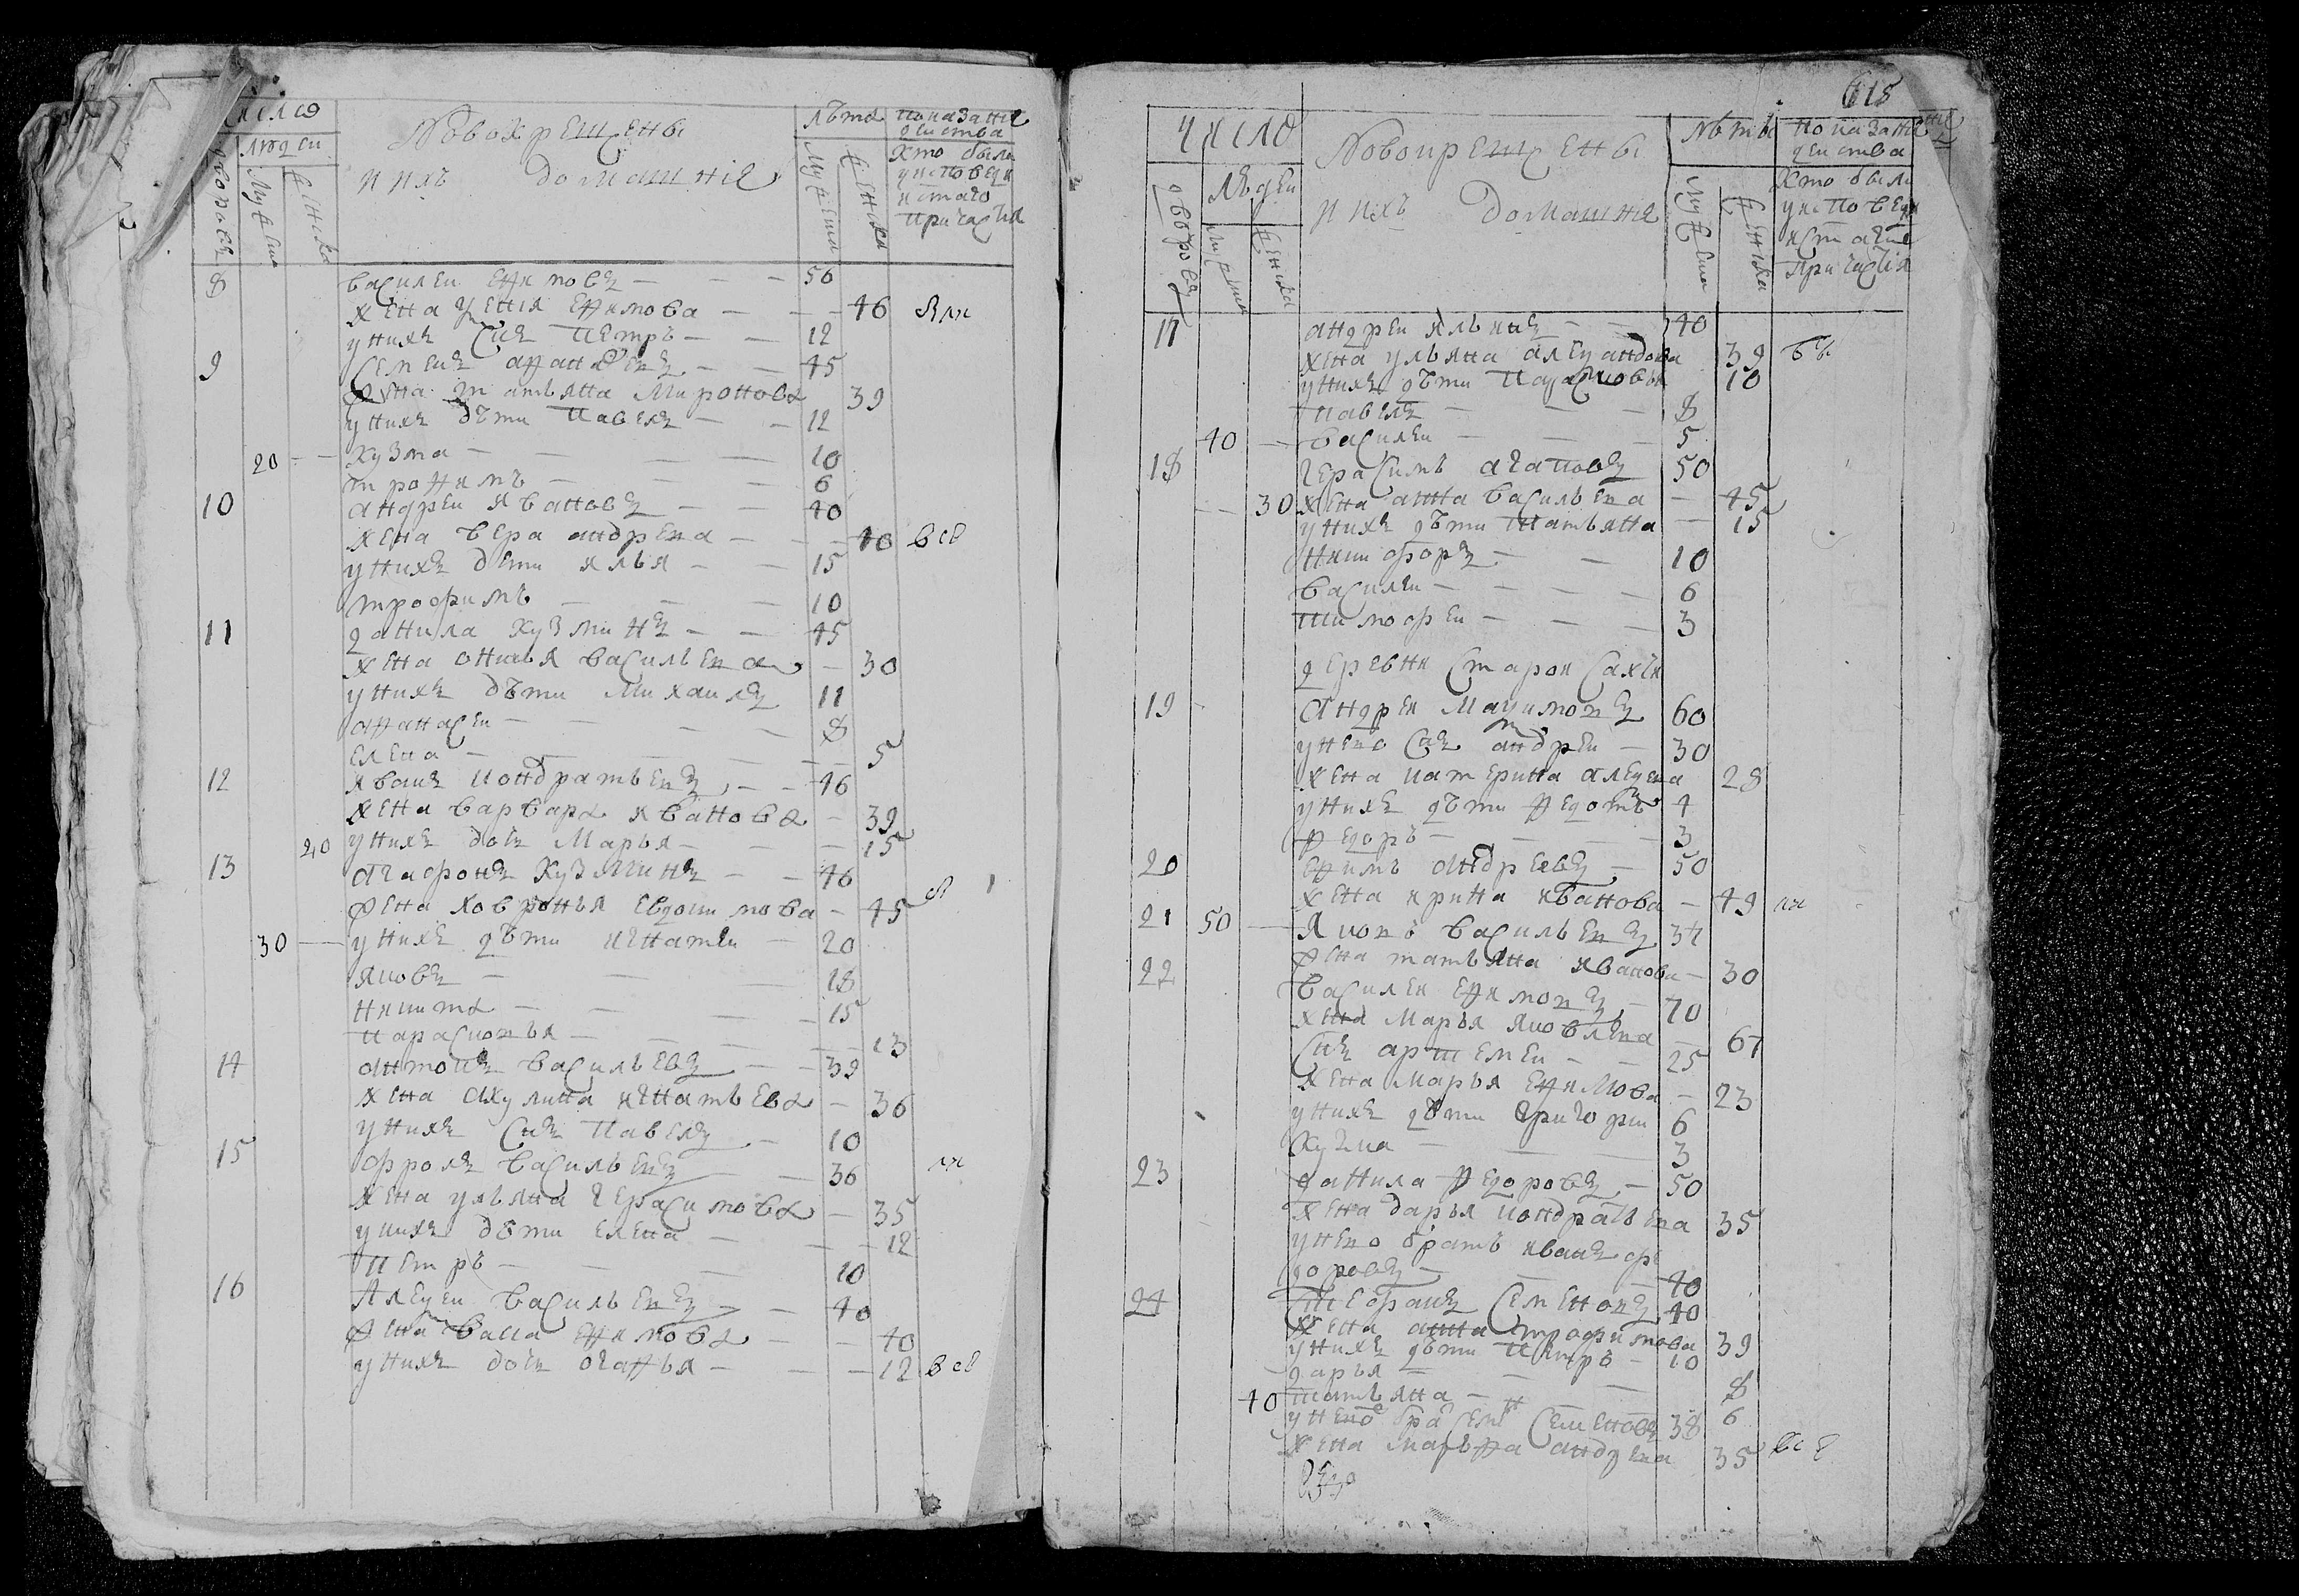 числа
людеи
дворовъ
мужеска
женска
Новокрещены
и ихъ домашние
лѣта
мужеска
женска
показание действа
хто были
у исповеди
и с таго
причастия
8 василеи ефимовъ 56
жена ксения ефимова 46
у нихъ снъ петръ 12
9 семенъ афанасевъ 45
жена татьяна миронова 39
у нихъ дѣти павелъ 12
20 кузма 10
трофимъ 6
10 андреи ивановъ 40
жена вера андреева 40 всѣ
у нихъ дети илья 15
трофимъ 10
11 данила кузминъ 45
жена васильева 30
у нихъ дѣти михаилъ 11
афанасеи 8
елена 5
12 иванъ кондратьевъ 46
жена варвара иванова 39
20 у нихъ дочь марья 15
13 агафонъ кузминъ 46
жена ховронья евдокимова 45
30 у нихъ дѣти игнатеи 20
яковъ 18
никита 15
парасковья 13
14 антонъ васильевъ 39
жена акулина игнатьева 36
у нихъ снъ павелъ 10
15 фролъ васильевъ 36
жена ульяна герасимова 35
у нихъ дѣти елена 12
петръ 10
16 алексеи васильевъ 40
жена васса ефимова 40
у нихъ дочь огафья 12 всѣ
615
число
людеи
дворовъ
мужеска
женска
Новокрещены
и ихъ домашния
лѣты
мужеска
женска
показание
действа
хто были
у исповеди
и с таги
причастия
17 андреи ильинъ 40
жена ульяна 39
у нихъ дѣти парасковья 10
павелъ 8
40 василеи 5
18 герасимъ агаповъ 50
30 жена анна васильева 45
у нихъ дѣти татьяна 15
никифоръ 10
василеи 6
тимофеи 3
деревни старои
19 андреи максимовъ 60
у него снъ андреи 30
жена катерина алексеева 28
у нихъ дѣти федотъ 4
федоръ 3
20 ефимъ андреевъ 50
жена ирина иванова 49
21 50 яковъ васильевъ 34
жена татьяна иванова 30
22 василеи ефимовъ 70
жена марья яковлева 67
снъ артемеи 25
жена марья ефимова 23
у нихъ дѣти григореи 6
кузма 3
23 данила федоровъ 50
жена дарья кондратьева 35
у него братъ иванъ фе
доровъ 40
24 степанъ семеновъ 40
жена анна трофимова 39
у нихъ дѣти петръ 10
дарья 8
40 татьяна 6
у него семеновъ 38
жена марфа андреева 35 всѣ